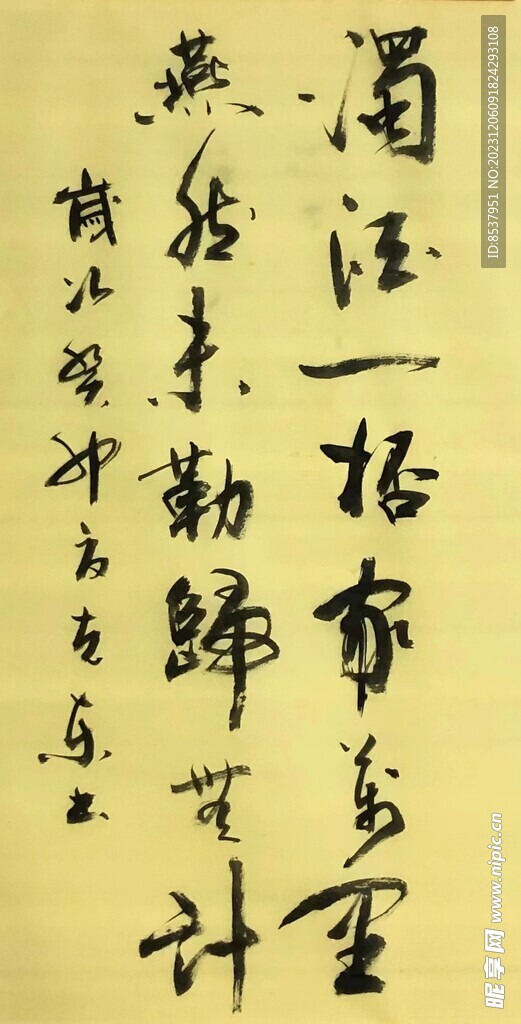 濁酒一桮家萬里
燕然未勒歸無計
歲次癸卯克東書
ID:8537951 NO:20231206091824293108
昵享网 www.nipic.cn